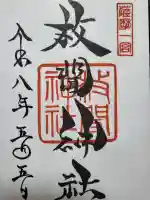 薩摩一宮
枚聞神社
枚聞
神社
令和八年五月五日